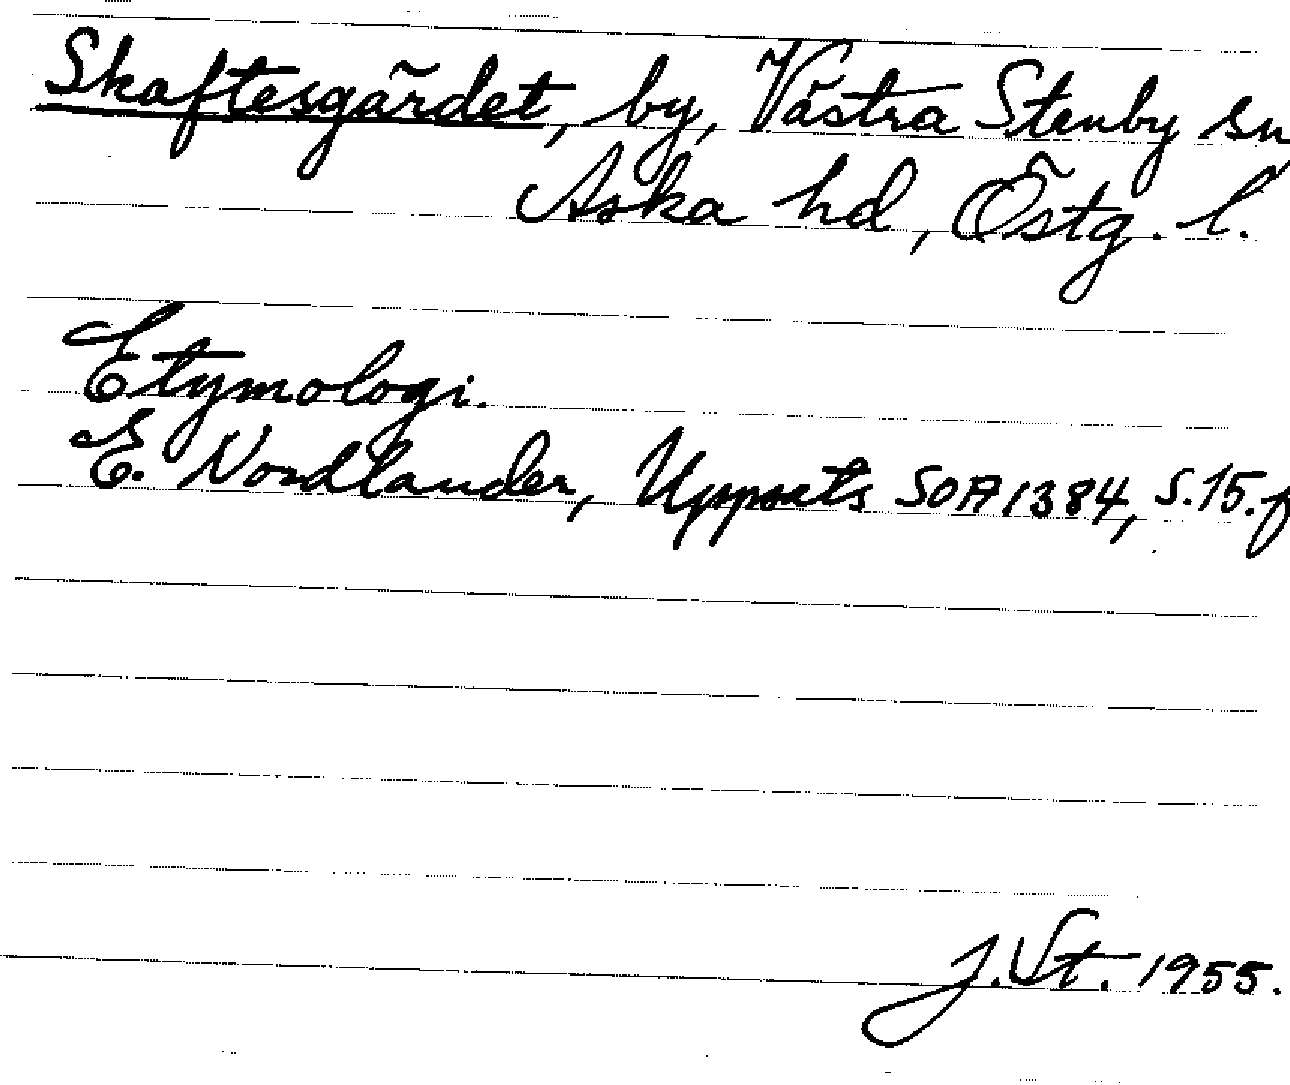 Skaftesgärdet, by, Västra Stenby sn,
Aska hd, Östg. l.
Etymologi.
E. Nordlander, Uppsats SOA 1384, s. 15. f
J. St. 1955.